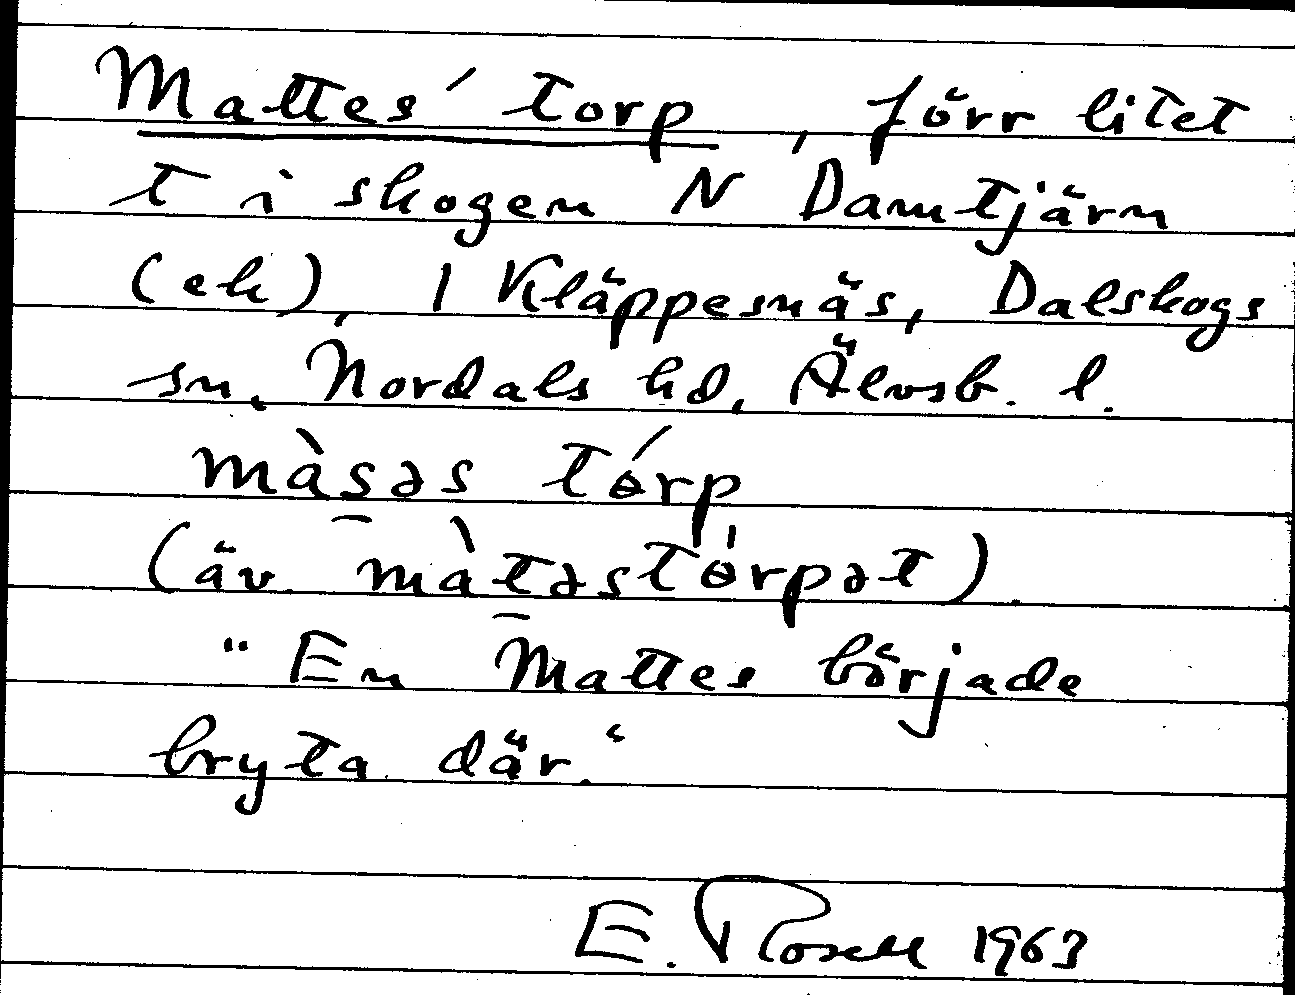 Mattes' torp, förr litet
t i skogen N Damtjärn
(ek), 1 Kläppesnäs, Dalskogs
sn, Nordals hd, Älvsb. l.
màsəs tórp
(äv. màtəstɵ̍rpət).
"En Mattes började
bryta där."
E. Rosell 1963